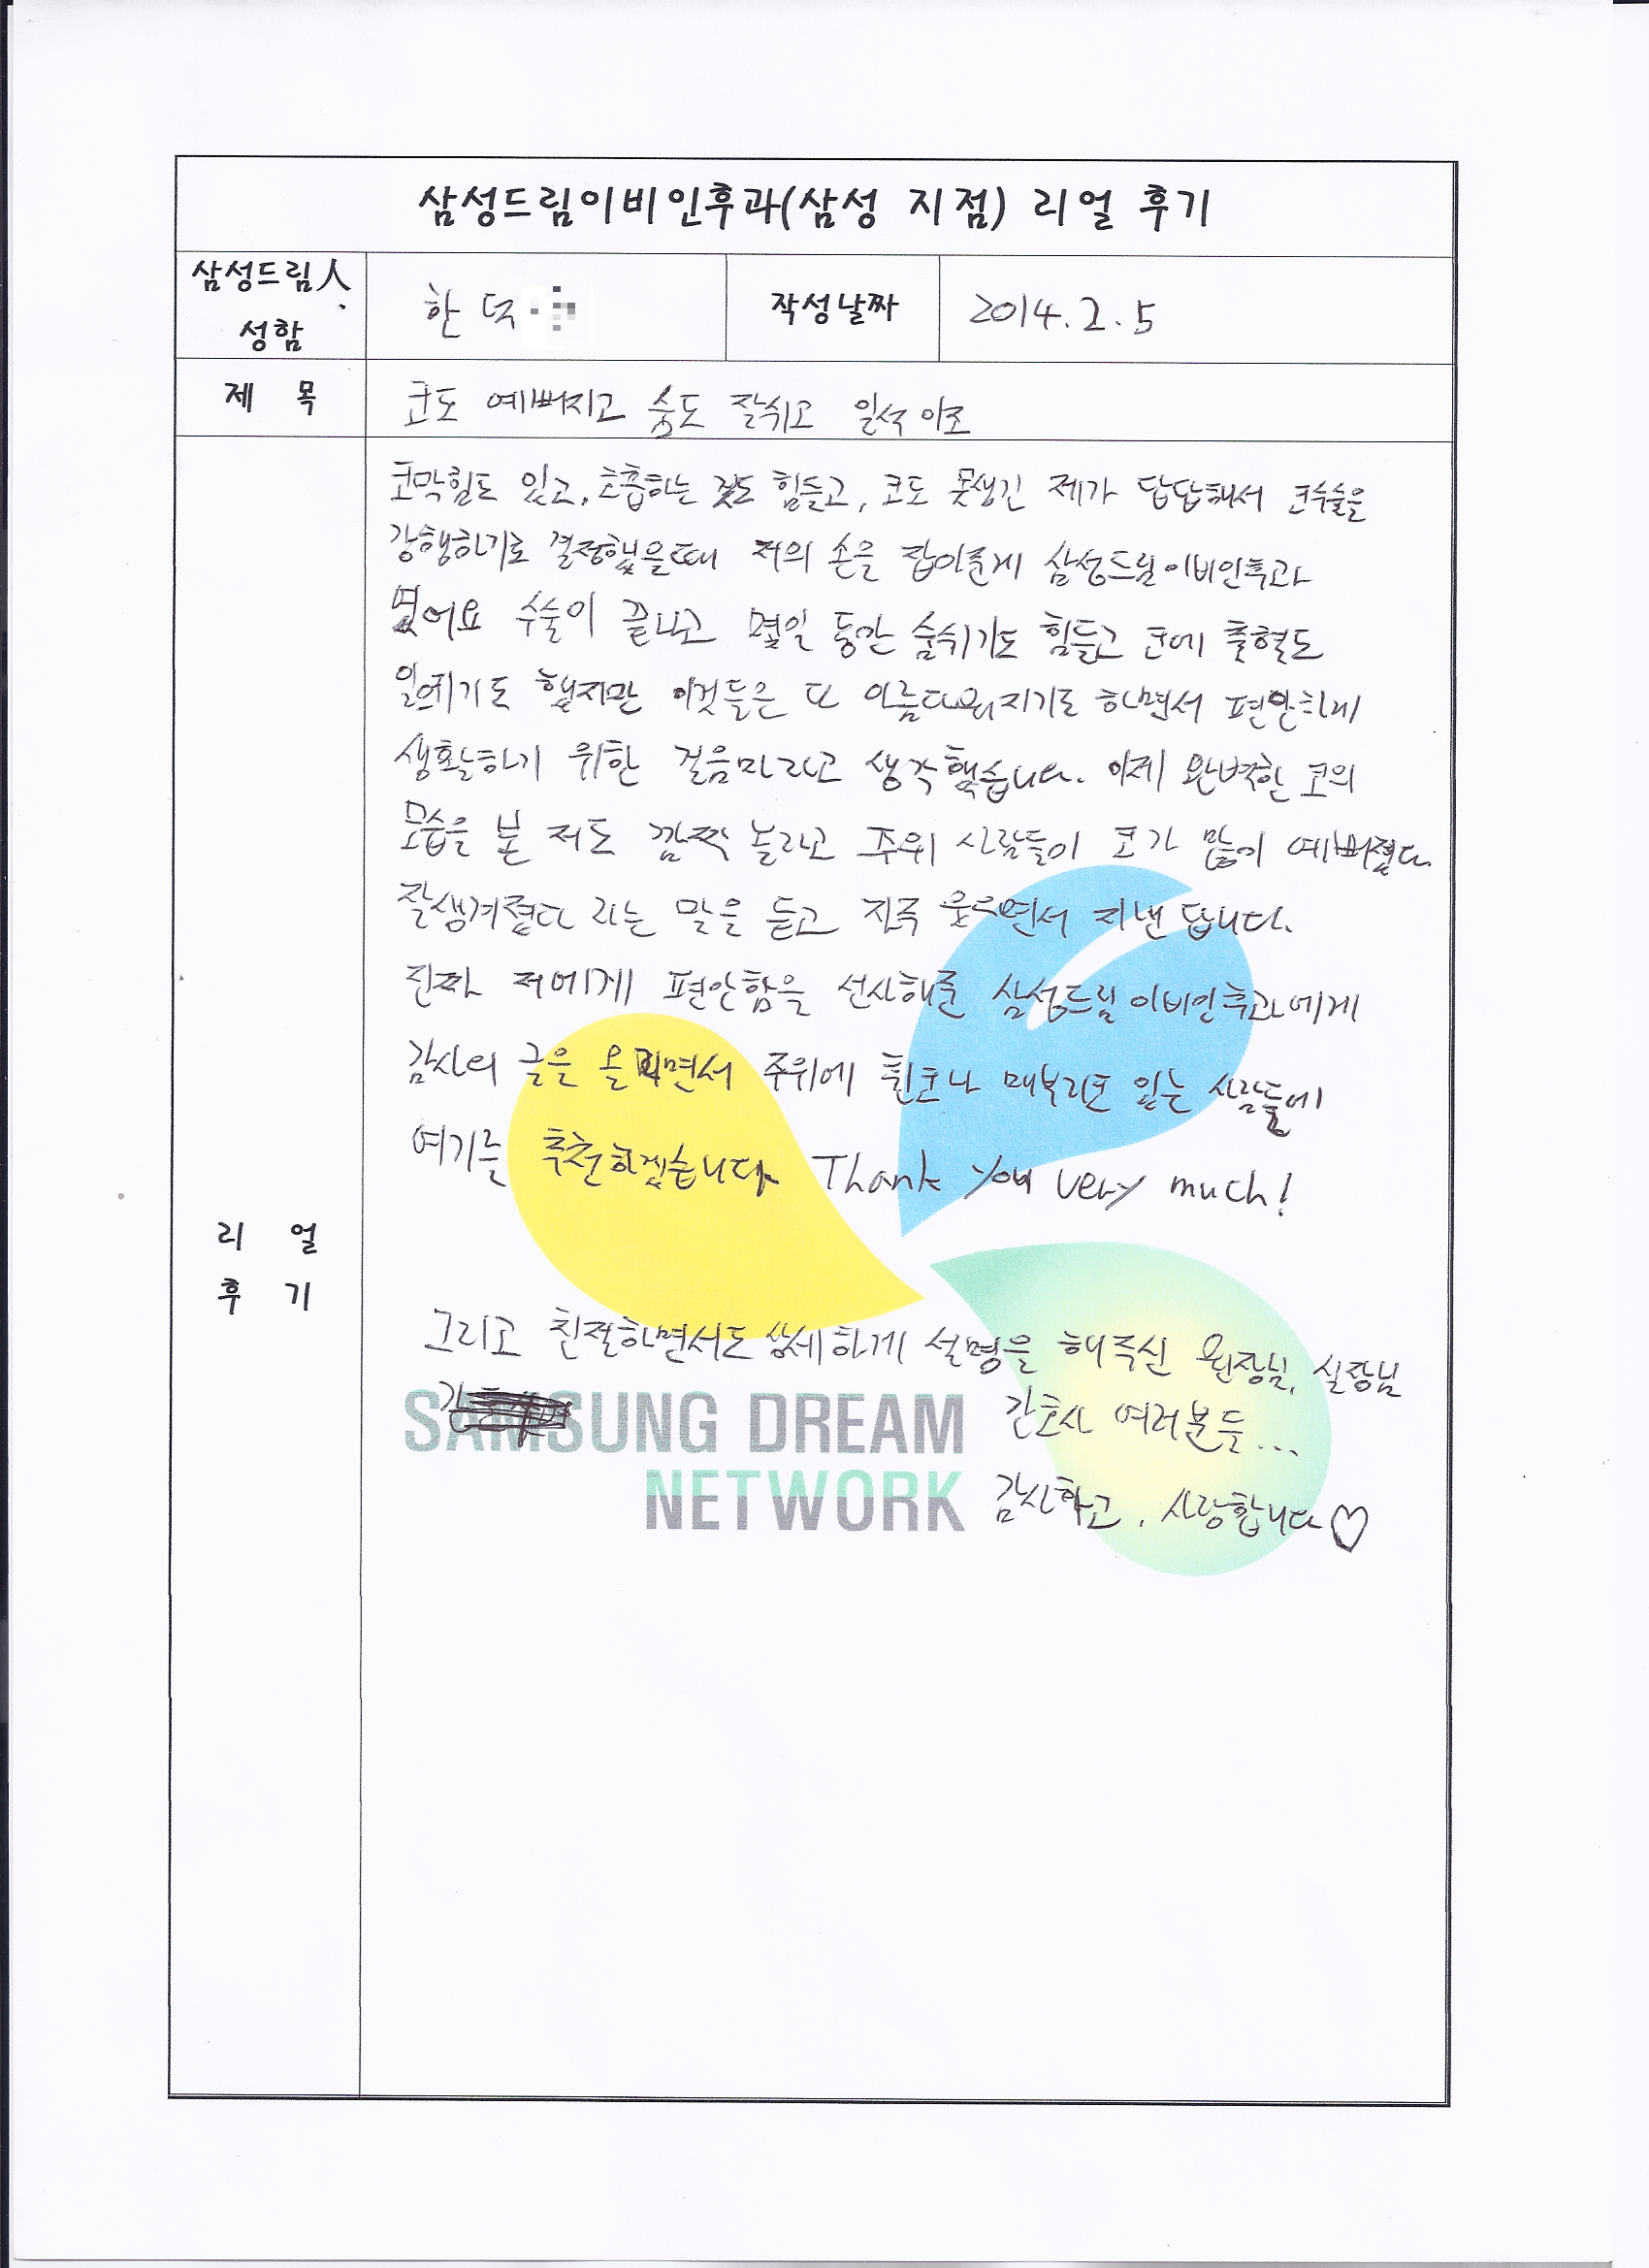 삼성드림이비인후과(삼성 지점) 리얼 후기
삼성드림人
성함
한덕
작성날짜
2014. 2. 5
제 목
코도 예뻐지고 숨도 잘쉬고 일석이조
코막힘도 있고, 호흡하는 것도 힘들고, 코도 못생긴 제가 답답해서 코수술을
강행하기로 결정했을때 저의 손을 잡아준게 삼성드림이비인후과
였어요 수술이 끝나고 몇일 동안 숨쉬기도 힘들고 코에 출혈도
했지만 이것들은 다 아름다워지기도 하면서 편안하게
생활하기 위한 걸음마라고 생각했습니다. 이제 완벽한 코의
모습을 본 저도 깜짝 놀라고 주위 사람들이 코가 많이 예뻐졌다.
잘생겨졌다 라는 말을 듣고 자주 웃으면서 지낸답니다.
진짜 저에게 편안함을 선사해준 삼성드림이비인후과에게
감사의 글을 올리면서 주위에 휜코나 매부리코 있는 사람들에
여기를 추천하겠습니다 Thank you very much!
리 얼
후 기
그리고 친절하면서도 상세하게 설명을 해주신 원장님, 실장님
간호사 여러분들...
감사하고, 사랑합니다♡
SAMSUNG DREAM
NETWORK